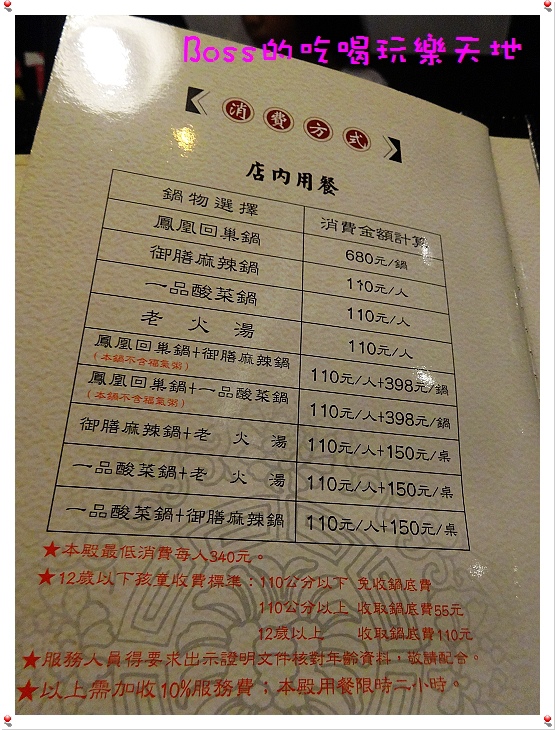 Boss的吃喝玩樂天地
消費方式
店內用餐
鍋物選擇 消費金額計算
鳳凰回巢鍋 680元/鍋
御膳麻辣鍋 110元/人
一品酸菜鍋 110元/人
老火湯 110元/人
鳳凰回巢鍋+御膳麻辣鍋 110元/人+398元/鍋
(本鍋不含福氣粥)
鳳凰回巢鍋+一品酸菜鍋 110元/人+398元/鍋
(本鍋不含福氣粥)
御膳麻辣鍋+老火湯 110元/人+150元/桌
一品酸菜鍋+老火湯 110元/人+150元/桌
一品酸菜鍋+御膳麻辣鍋 110元/人+150元/桌
★本殿最低消費每人340元。
★12歲以下孩童收費標準：110公分以下 免收鍋底費
110公分以上 收取鍋底費55元
12歲以上 收取鍋底費110元
★服務人員得要求出示證明文件核對年齡資料，敬請配合。
★以上需加收10%服務費；本殿用餐限時二小時。